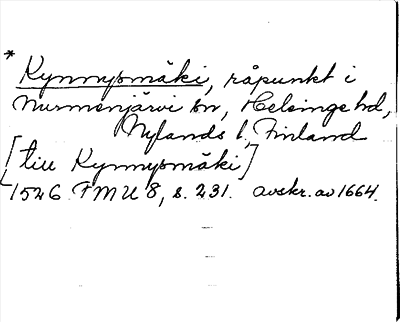 * Kynnypsmäki, råpunkt i
Nurmenjärvi sn, Helsinge hd,
Nylands l. Finland
[till Kynnypsmäki]
1526 FMU 8, s. 231. avskr. av 1664.